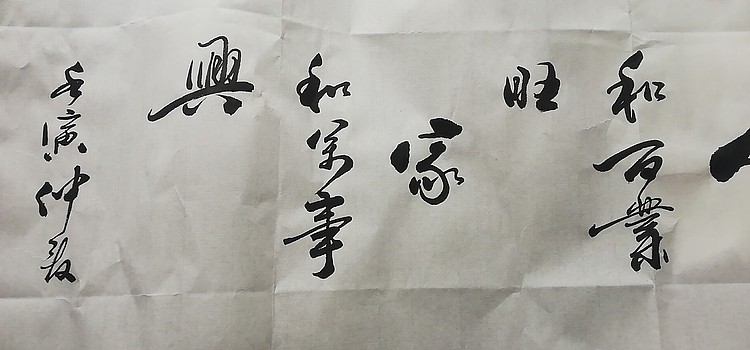 和百業
旺
家
和萬事
興
壬寅仲夏